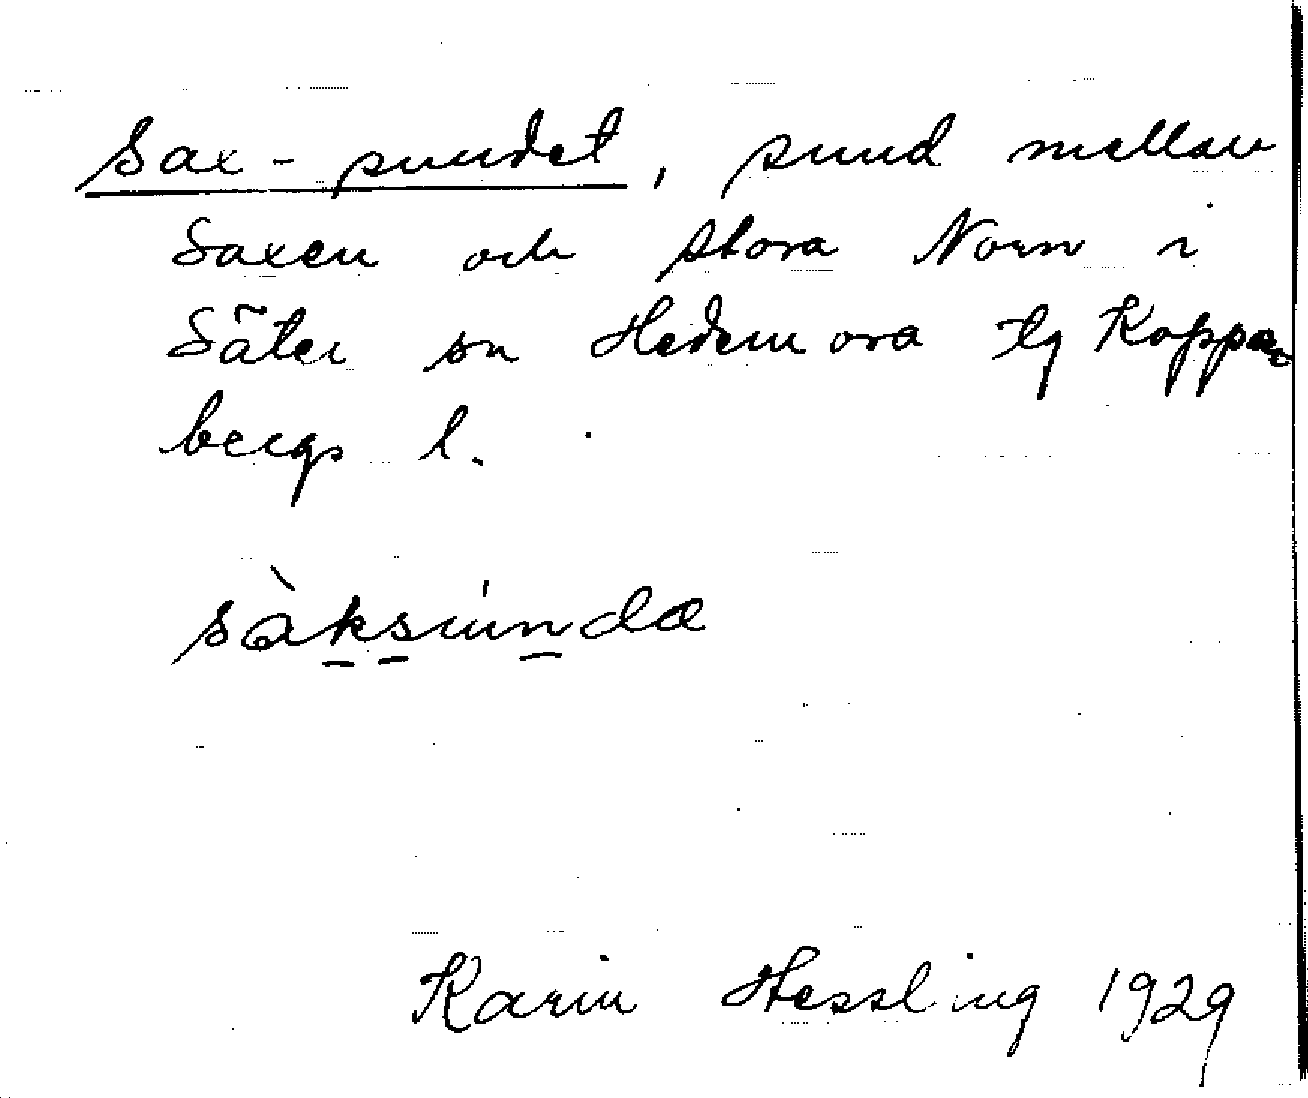 Sax-sundet, sund mellan
Saxen och Stora Norn i
Säter sn Hedemora tg Koppar
bergs l.
sàksúndæ
Karin Hessling 1929